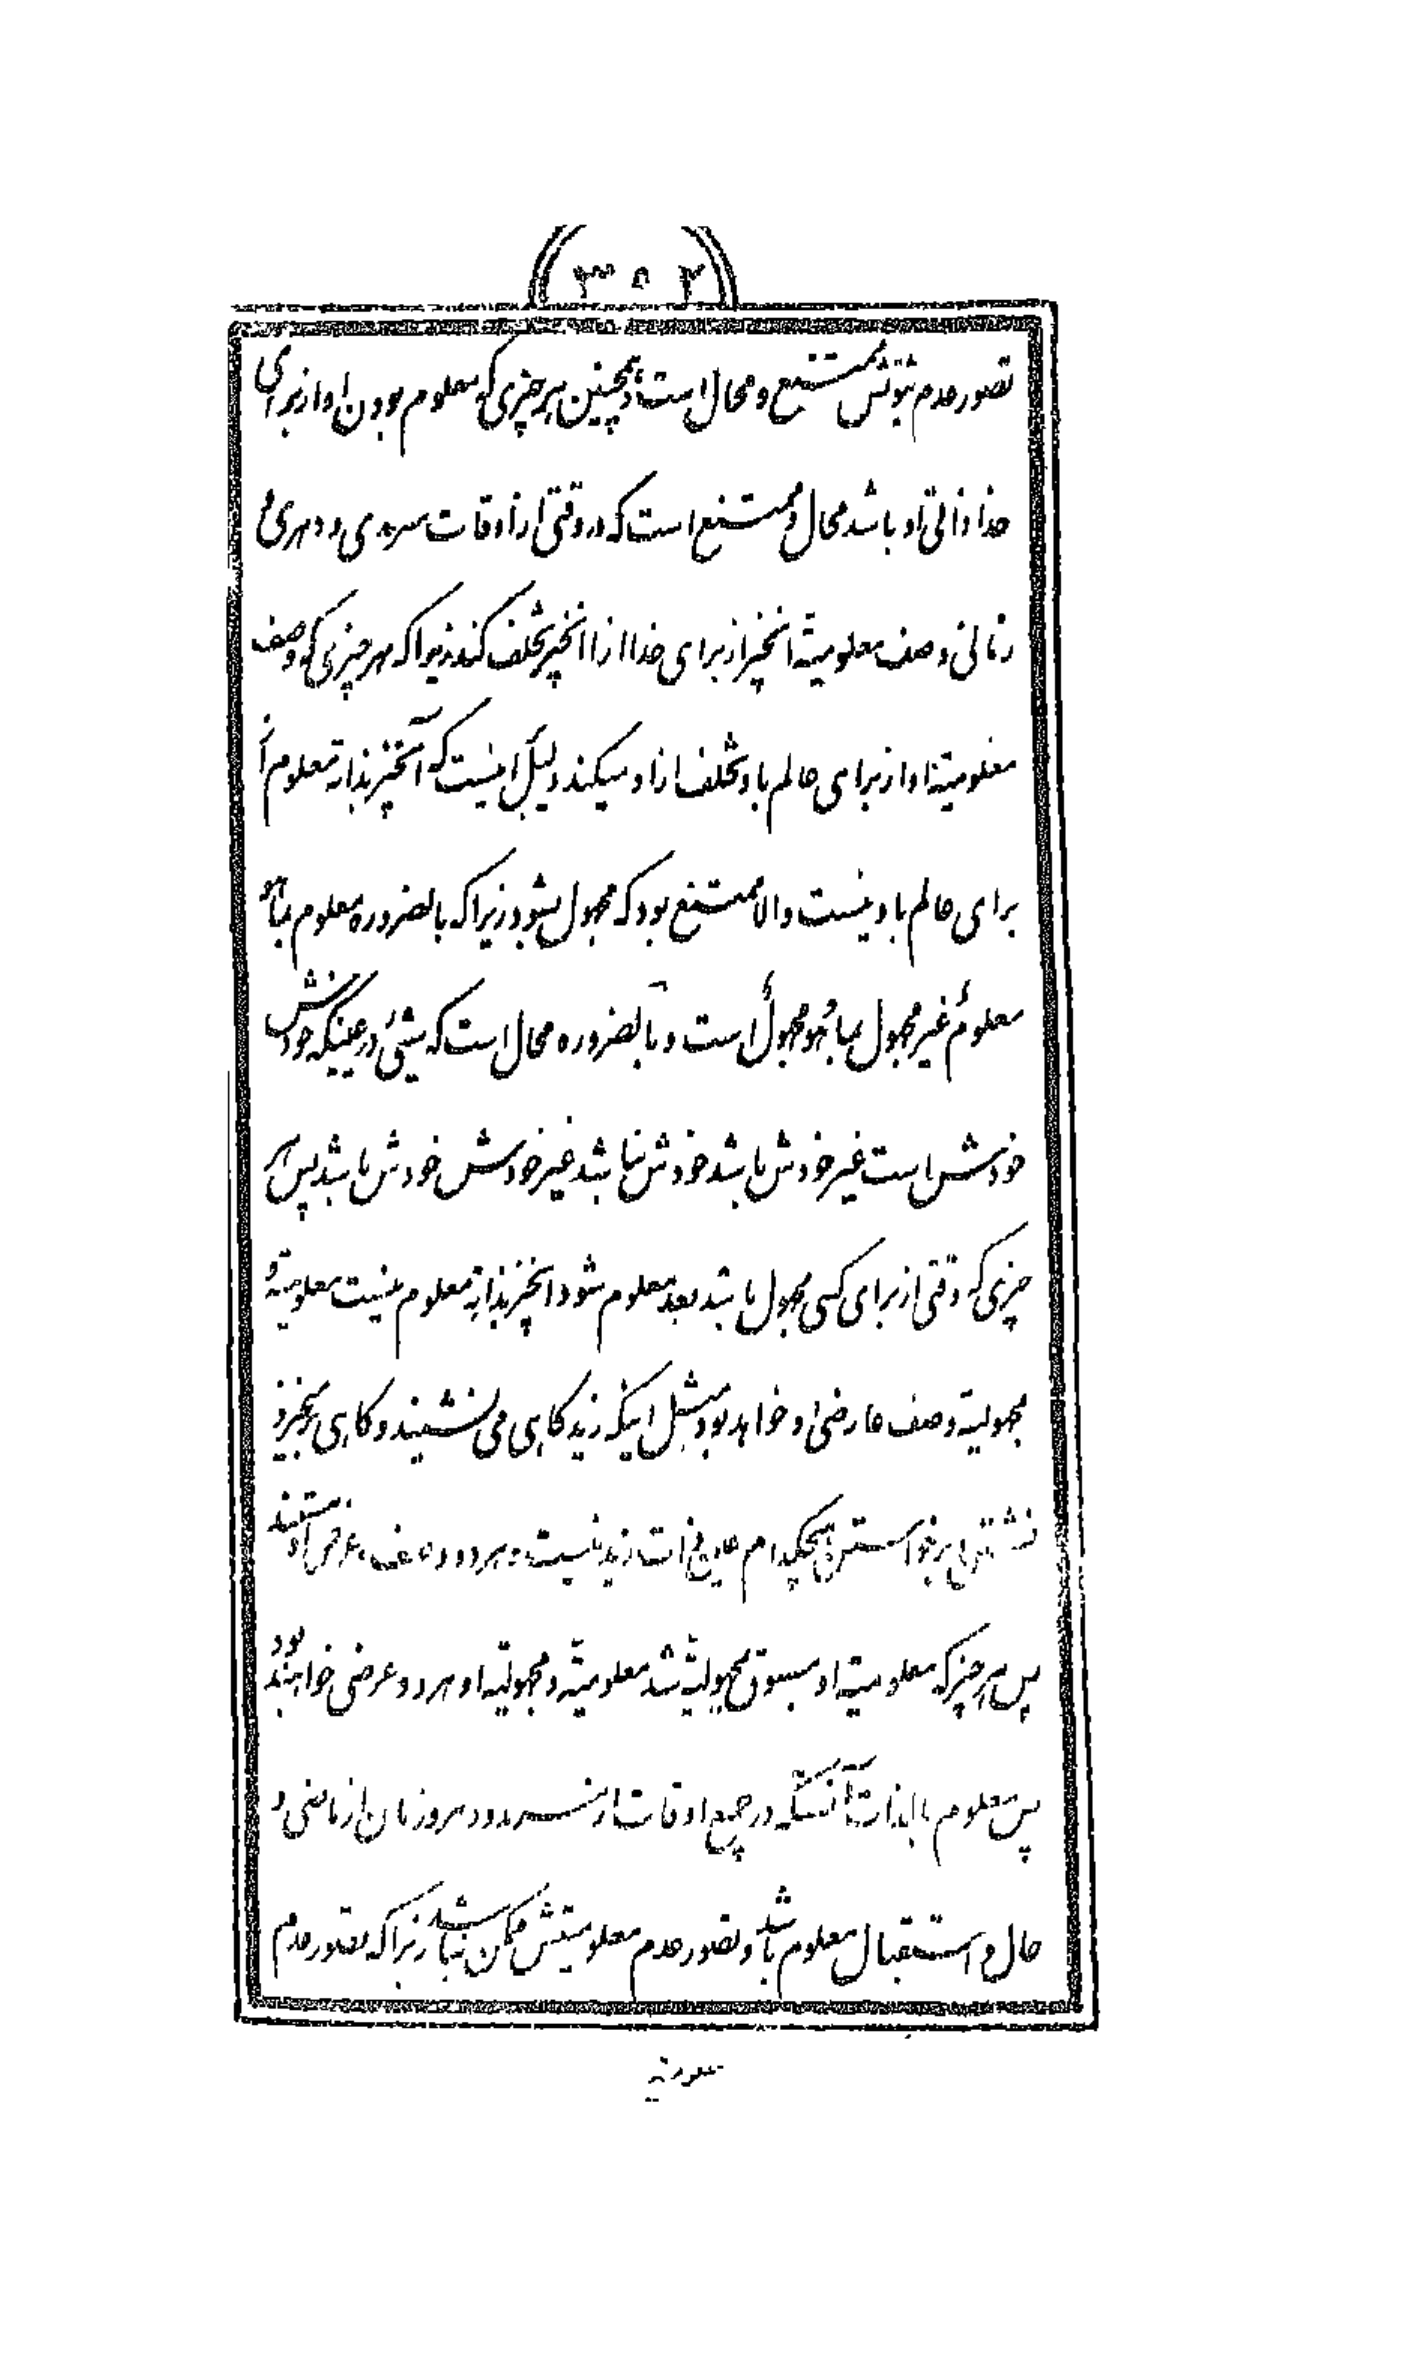 ۳۵۲
تصور عدم ثبوتش ممتنع و محال است و همچنین هر چیزی که معلوم بودن او از برای
خدا ذاتی او باشد محال و ممتنع است که در وقتی از اوقات سرمدی و دهری و
زمانی وصف معلومیتة انچیز از برای خدا از انچیز تخلف کند زیرا که هر چیزی که وصف
معلومیتة او از برای عالم باو تخلف از او میکند دلیل اینست که آنچیز بذاته معلوم از
برای عالم باو نیست والا ممتنع بود که مجهول بشود زیرا که بالضروره معلوم بما هو
معلوم غیر مجهول بما هو مجهول است و بالضروره محال است که شیئی در عینیکه خودش
خودش است غیر خودش باشد خودش نباشد غیر خودش خودش باشد پس هر
چیزی که وقتی از برای کسی مجهول باشد بعد معلوم شود انچیز بذاته معلوم نیست معلومیته و
مجهولیة وصف عارضی او خواهد بود مثل اینکه زید کاهی می نشیند و کاهی برمیخیزد
نشستن و برخواستن هیچکدام عین ذات زید نیست و هر دو وصف عرض او هستند
پس هر چیز که معلومیته او مسبوق بمجهولیة شد معلومیته و مجهولیته او هر دو عرضی خواهند بود
پس معلوم بالذات آنستکه در جمیع اوقات از سرمد و دهر و زمان از ماضی و
حال و استقبال معلوم باشد و تصور عدم معلومیتش ممکن نباشد زیرا که تصور عدم
معلومیته